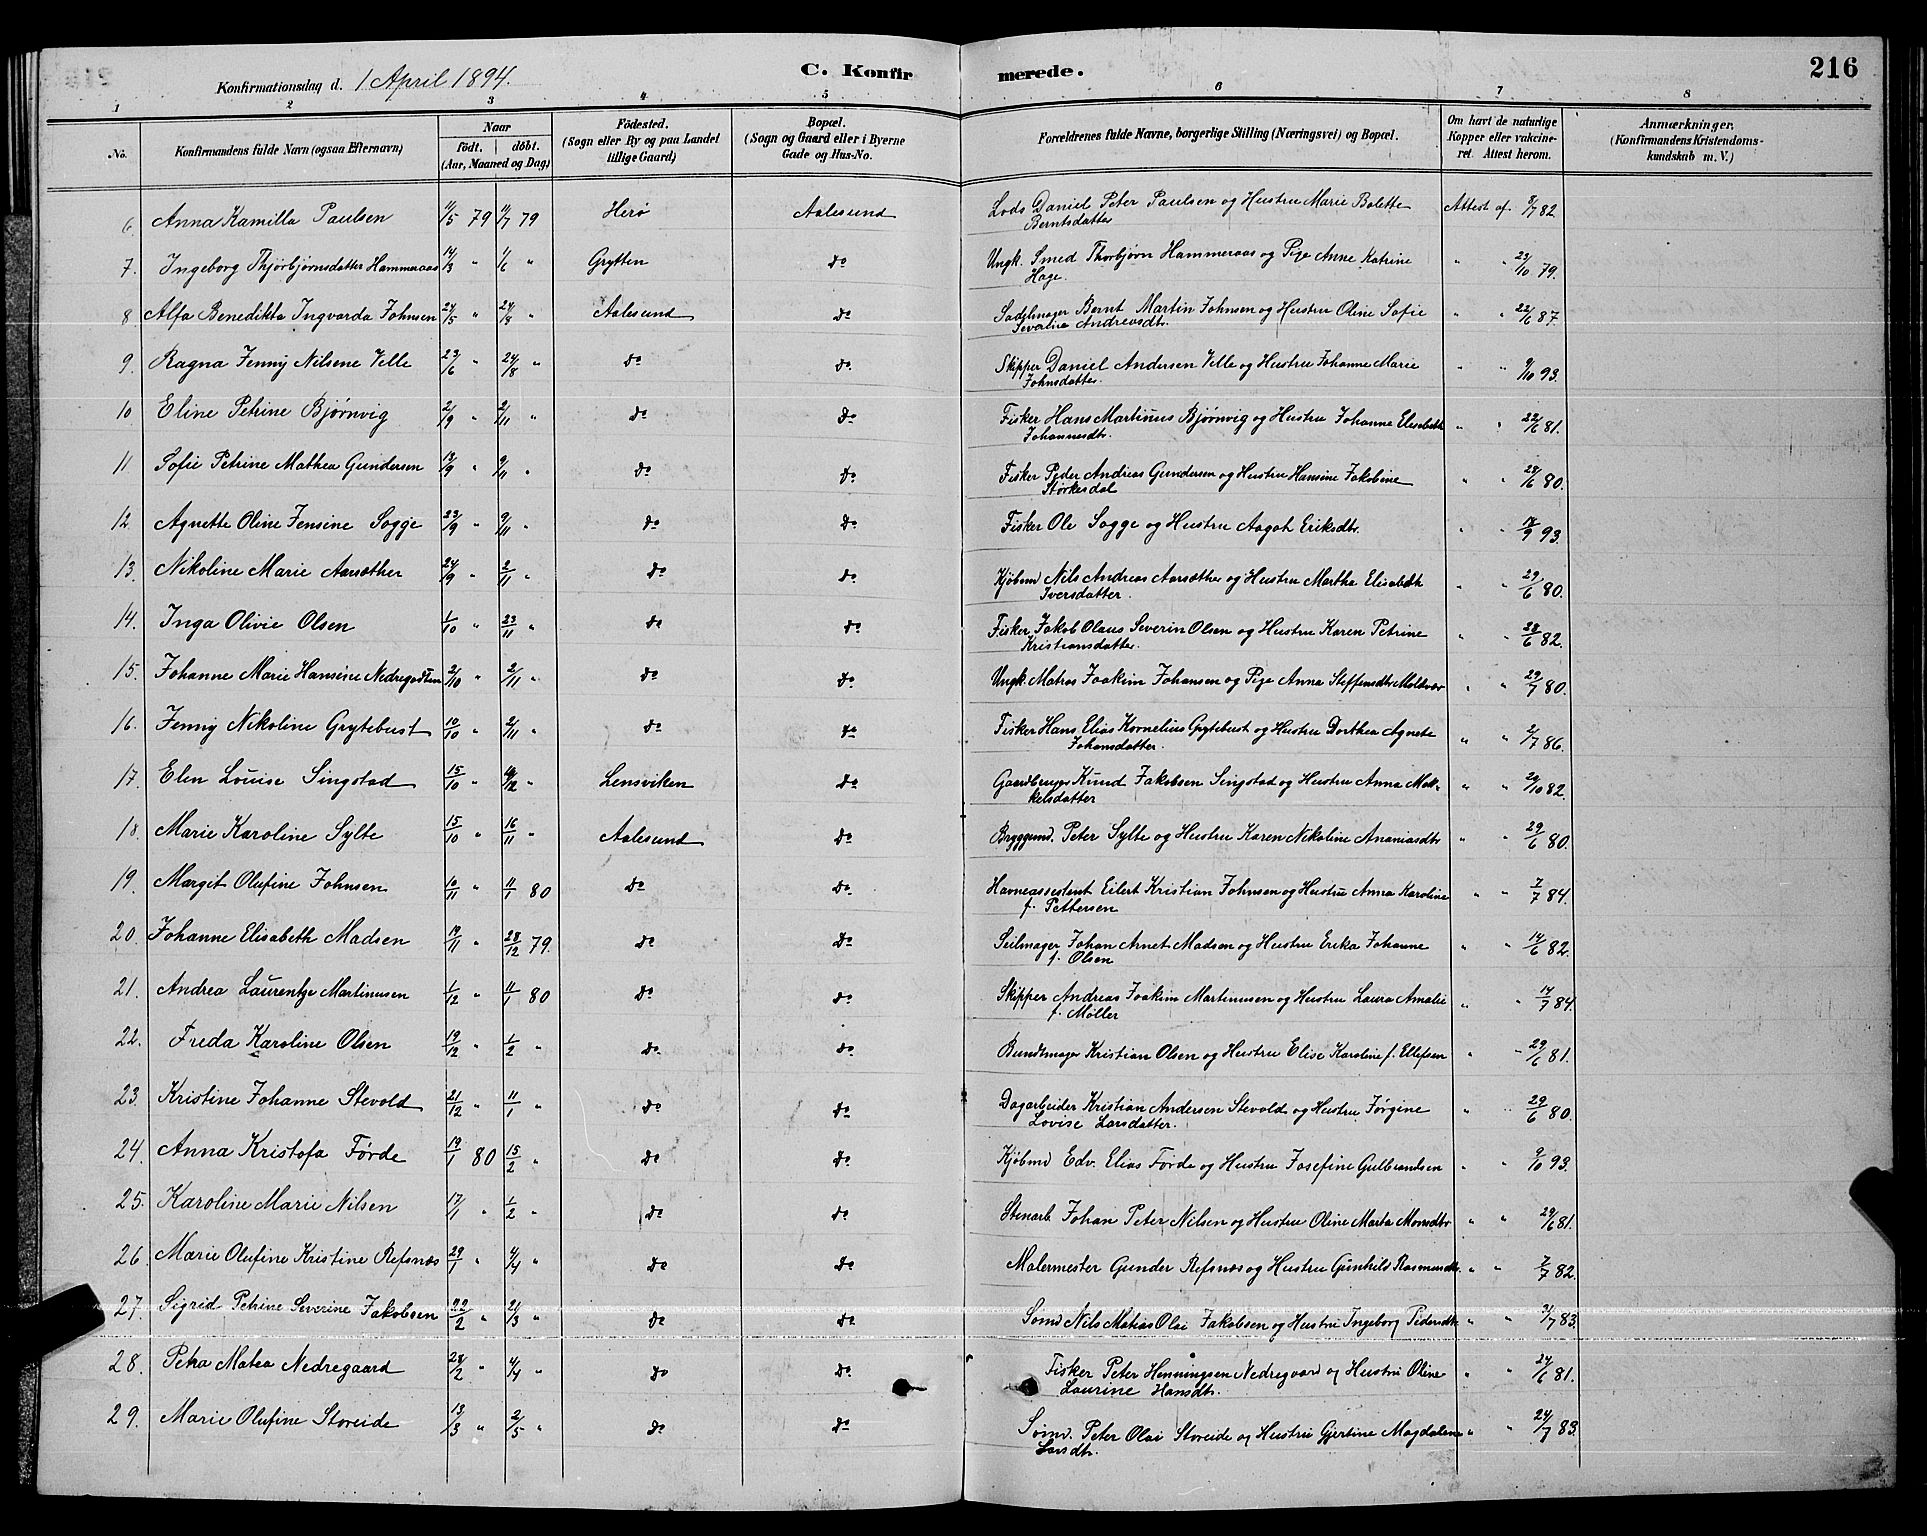 Konfirmationsdag d. 1 April 1894.
C. Konfirmerede.
216
1 2 3 4 5 6 7 8
No. Konfirmandens fulde Navn (ogsaa Efternavn) Naar födt. döbt. (Aar, Maaned og Dag) Födested. (Sogn eller By og paa Landet tillige Gaard) Bopæl. (Sogn og Gaard eller i Byerne Gade og Hus-No. Forældrenes fulde Navne, borgerlige Stilling (Næringsvei) og Bopæl. Om havt de naturlige Kopper eller vakcineret. Attest herom. Anmærkninger. (Konfirmandens Kristendomskundskab m. V.)
6. Anna Kamilla Paulsen 11/5 79 11/7 79 Herö Aalesund Lods Daniel Peter Paulsen og Hustru Marie Bolette Attest af 3/7 82
Berntsdatter
7. Ingeborg Thjorbjørnsdatter Hammeraas 14/3 " 1/6 " Grytten do Ungk. Smed Thorbjørn Hammeraas og Pige Anne Katrine " " 29/10 79.
Hage.
8 Alfa Benedikta Ingvarda Johnsen 24/5 " 24/8 " Aalesund do Sadelmager Bernt Martin Johnsen og Hustru Oline Sofie " " 22/6 87.
Sevalna Andreasdtr.
9. Ragna Jenny Nilsene Velle 23/6 " 24/8 " do do Skipper Daniel Andersen Velle og Hustru Johanne Marie " " 9/10 93.
Johnsdatter.
10 Eline Petrine Bjørnvig 2/9 " 2/11 " do do Fisker Hans Martinus Bjørnvig og Hustru Johanne Elisabeth " " 22/6 81.
Johannesdtr.
11. Sofie Petrine Mathea Gundersen 13/9 " 9/11 " do do Fisker Peder Andreas Gundersen og Hustru Hansine Jakobine " " 28/6 80.
Størkesdal
12. Agnette Oline Jensine Sogge 23/9 " 9/11 " do do Fisker Ole Sogge og Hustru Aagot Eriksdtr. " " 18/9 93.
13. Nikoline Marie Aarsæther 24/9 " 2/11 " do do Kjøbmd Nils Andreas Aarsæther og Hustru Martha Elisabeth " " 29/6 80.
Iversdatter.
14. Inga Olivie Olsen 1/10 " 23/11 " do do Fisker Jakob Olaus Severin Olsen og Hustru Karen Petrine " " 28/6 82.
Kristiansdatter.
15. Johanne Marie Hansine Nedregotten 2/10 " 2/11 " do do Ungk. Matros Joakim Johansen og Pige Anna Steffensdtr Moldvær " " 29/7 80.
16. Jenny Nikoline Grytebust 10/10 " 2/11 " do do Fisker Hans Elias Kornelius Grytebust og Hustru Dorthea Agnete " " 2/7 86.
Johansdatter.
17. Elen Louise Singstad 15/10 " /12 " Lensviken do Gaardbruger Knud Jakobsen Singstad og Hustru Anna Mok- " " 29/10 82.
kelsdatter
18. Marie Karoline Sylte 15/10 " 16/11 " Aalesund do Bryggemd. Peter Sylte og Hustru Karen Nikoline Ananiasdtr " " 29/6 80.
19. Margit Olufine Johnsen 10/11 " 11/1 80 do do Havneassistent Eilert Kristian Johnsen og Hustru Anna Karoline " " 7/7 84.
f. Pettersen
20. Johanne Elisabeth Madsen 19/11 " 28/12 79. do do Seilmager Johan Arnet Madsen og Hustru Erika Johanne " " 14/6 82.
f. Olsen
21. Andrea Laurentze Martinusen 1/12 " 11/1 80 do do Skipper Andreas Joakim Martinusen og Hustru Laura Amalie " " 14/7 84.
f. Møller
22. Freda Karoline Olsen 19/12 " 1/2 " do do Bundtmager Kristian Olsen og Hustru Elise Karoline f. Ellefsen " " 29/6 81.
23. Kristine Johanne Stevold 21/12 " 11/1 " do do Dagarbeider Kristian Andersen Stevold og Hustru Jørgine " " 29/6 80.
Lovise Larsdatter.
24. Anna Kristofa Førde 19/1 80 15/2 " do do Kjøbmd Edv. Elias Førde og Hustru Josefine Gulbrandsen " " 9/10 93.
25. Karoline Marie Nilsen 17/1 " 1/2 " do do Stenarb. Johan Peter Nilsen og Hustru Oline Marta Monsdtr " " 29/6 81.
26. Marie Olufine Kristine Refsnæs 29/1 " 4/4 " do do Malermester Gunder Refsnæs og Hustru Gunhild Rasmusdtr. " " 7/7 82.
27. Sigrid Petrine Severine Jakobsen 22/2 " 21/3 " do do Sømd Nils Matias Olai Jakobsen og Hustru Ingeborg Pedersdtr " " 31/7 83.
28. Petra Matea Nedregaard 28/2 " 4/4 " do do Fisker Peter Henningsen Nedregaard og Hustru Oline " " 24/6 81.
Laurine Hansdtr.
29. Marie Olufine Storeide 13/3 " 2/5 " do do Sømd. Peter Olai Storeide og Hustru Gjertine Magdalene " " 24/7 83.
Larsdtr.